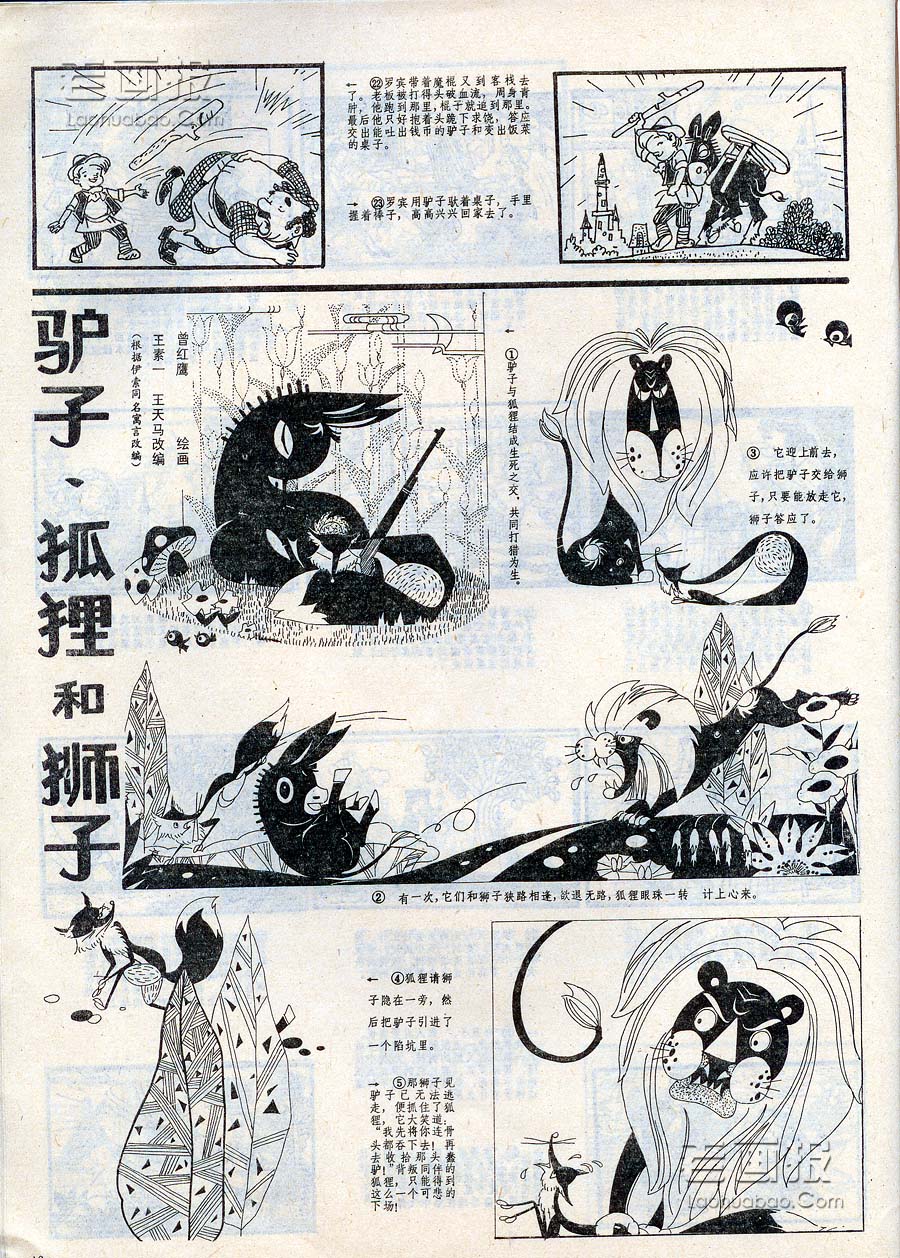 老画报
Laohuabao.Com
← ㉒罗宾带着魔棍又到客栈去
了。老板被打得头破血流，周身青
肿，他跑到那里，棍子就追到那里。
最后他只好抱着头跪下求饶，答应
交出能吐出钱币的驴子和变出饭菜
的桌子。
→ ㉓罗宾用驴子驮着桌子，手里
握着棒子，高高兴兴回家去了。
驴子、狐狸和狮子
曾红鹰 绘画
王素一 王天马改编
（根据伊索同名寓言改编）
← ①驴子与狐狸结成生死之交，共同打猎为生。
③ 它迎上前去，
应许把驴子交给狮
子，只要能放走它，
狮子答应了。
② 有一次，它们和狮子狭路相逢，欲退无路，狐狸眼珠一转 计上心来。
← ④狐狸请狮
子隐在一旁，然
后把驴子引进了
一个陷坑里。
→ ⑤那狮子见
驴子已无法逃
走，便抓住了狐
狸，它大笑道：
“我先将你连骨
头都吞下去！再
去收拾那头蠢
驴！”背叛同伴的
狐狸，只能得到
这么一个可悲的
下场！
老画报
Laohuabao.Com